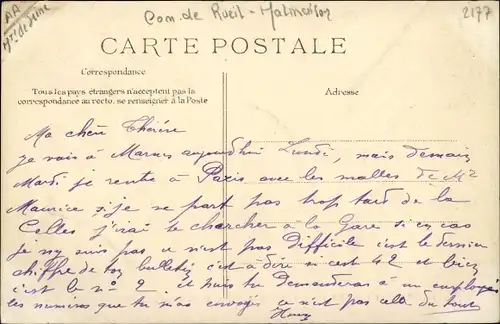 AA
Hts de Seine
Com. de Rueil-Malmaison
2177
CARTE POSTALE
Correspondance
Tous les pays étrangers n'acceptent pas la
correspondance au recto, se renseigner à la Poste
Adresse
Ma chère Thérèse
je vais à Marnes aujourdhui Lundi, mais demain
Mardi je rentre à Paris avec les malles de Mr
Maurice si je ne part pas trop tard de la
Celles j'irai te chercher à la Gare si en cas
je n'y suis pas ce n'est pas Difficile c'est le dernier
chiffre de ton bulletin c'est à dire si c'est 42 et bien
c'est le no 2. et puis tu demanderas à un employé
les numéros que tu m'as envoyés ce n'est pas cela du tout
Henry